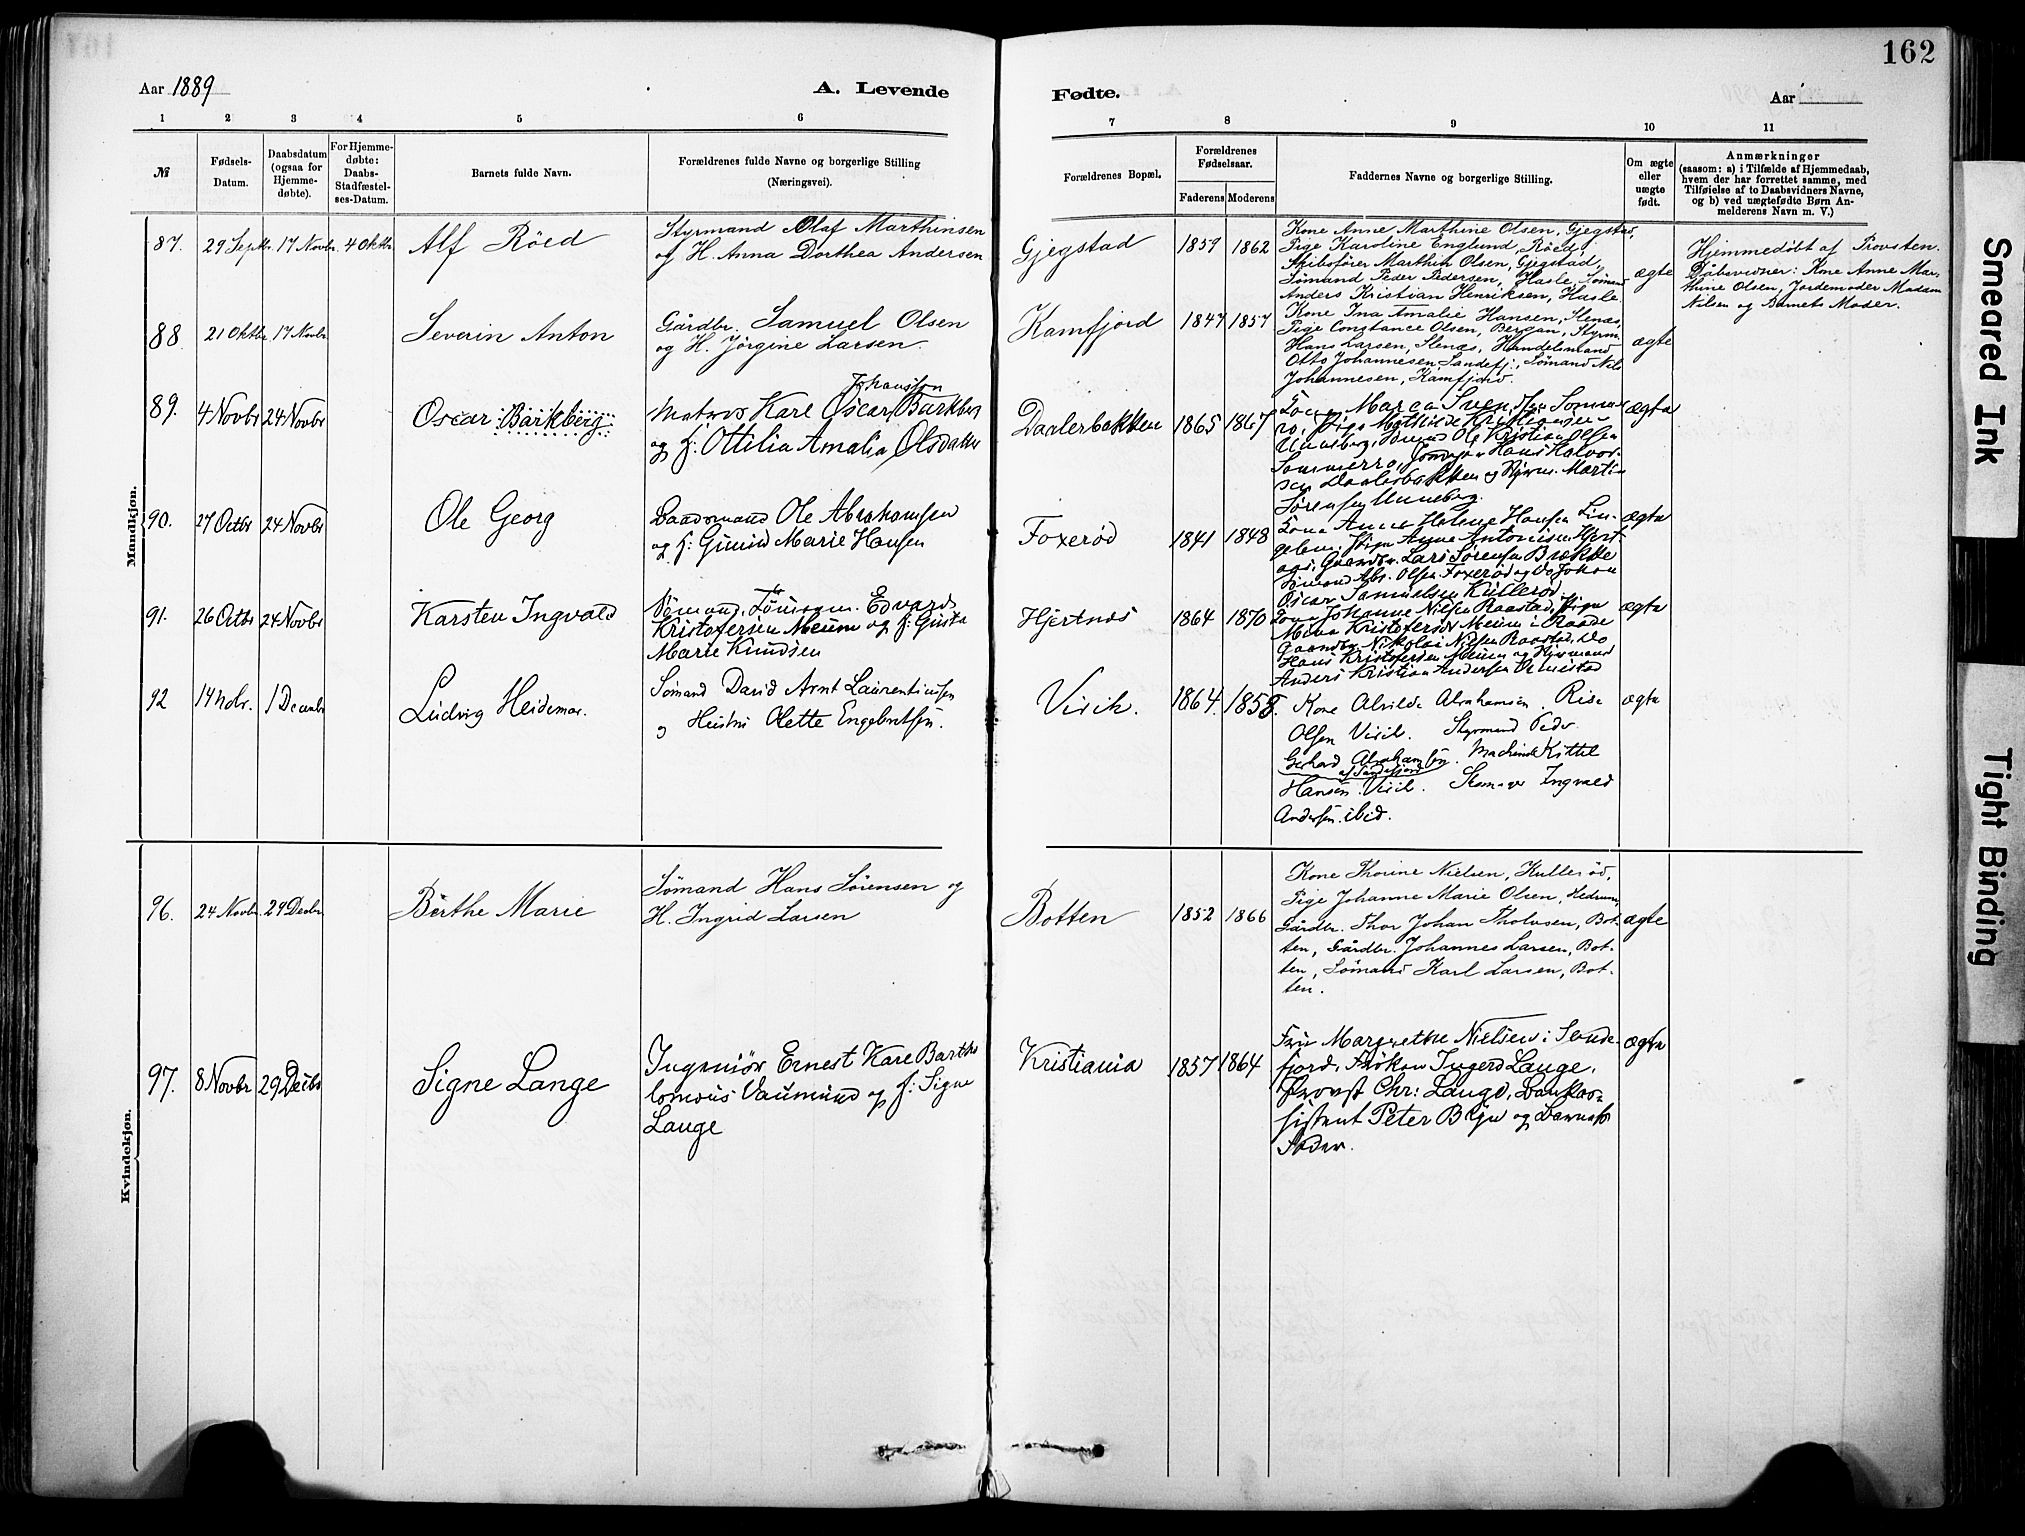 162
Aar 1889
A. Levende
Fødte.
Aar
1 2 3 4 5 6 7 8 9 10 11
№
Fødsels-
Datum.
Daabsdatum
(ogsaa for
Hjemme-
døbte).
For Hjemme-
døbte:
Daabs-
Stadfæstel-
ses-Datum.
Barnets fulde Navn.
Forældrenes fulde Navne og borgerlige Stilling
(Næringsvei).
Forældrenes Bopæl.
Forældrenes
Fødselsaar.
Faderens Moderens
Faddernes Navne og borgerlige Stilling.
Om ægte
eller
uægte
født.
Anmærkninger
(saasom: a) i Tilfælde af Hjemmedaab,
hvem der har forrettet samme, med
Tilføielse af to Daabsvidners Navne,
og b) ved uægtefødte Børn An-
melderens Navn m. V.)
Mandkjøn.
87. 29 Septbr. 17 Novbr. 4 Oktbr.
Alf Röed
Styrmand Olaf Marthinsen
og H. Anna Dorthea Andersen
Gjegstad
1859 1862
Kone Anne Marthine Olsen, Gjegstad,
Pige Karoline Englund Röed,
Skibsfører Marthin Olsen, Gjegstad,
Sømand Peder Pedersen, Hasle, Sømand
Anders Kristian Henriksen, Hasle.
ægte
Hjemmedøbt af Provsten.
Dåbsvidner: Kone Anne Mar-
thine Olsen, Jordemoder Madam
Nilsen og Barnets Moder.
88 21 Oktbr. 17 Novbr.
Severin Anton
Gårdbr. Samuel Olsen
og H. Jörgine Larsen
Kamfjord
1847 1857
Kone Ina Amalie Hansen, Stenæs,
Pige Constance Olsen, Bergan, Styrm.
Hans Larsen, Stenæs, Handelsmand
Otto Johannesen, Sandefj., Sømand Nils
Johannesen, Kamfjord.
ægte
89. 4 Novbr 24 Novbr
Oscar Barkberg
Johansson
Matros Karl Oscar Barkberg
og H: Ottilia Amalia Olsdatter
Daalerbakken
1865 1867
Kone Maren Svendsen Sommer-
ro, Pige Mathilde Kristiansen
Unneberg, Sømand Ole Kristian Olsen
Sommerro, Hans Halvor-
sen Daalerbakken og Styrm. Martin
Sørensen Unneberg.
ægte
90. 27 Octbr 24 Novbr
Ole Georg
Baadsmand Ole Abrahamsen
og H: Gunild Marie Hansen
Foxerød
1841 1848
Kone Anne Helene Hansen Lin-
gelem, Pige Anne Antonisen Hjert-
aas, Gaardbr. Lars Sørensen Brække
Sømand Abr. Olsen Foxerød og Do Johan
Oscar Samuelsen Kullerød.
ægte
91. 26 Octbr 24 Novbr
Karsten Ingvald
Sømand, Edvard
Kristofersen Meum og H: Gusta
Marie Knudsen
Hjertnes
1864 1870
Kone Johanne Nilsen Raastad, Pige
Mina Kristofersen Meum i Raade
Gaardbr. Nikolai Nilsen Raastad, Do
Hans Kristofersen Meum og Styrmand
Anders Kristian Andersen
ægte
92 14 Nobr. 1 Decmbr
Ludvig Heidemar.
Sømand David Arnt Laurentiussen
og Hustru Olette Engebretsen.
Virik.
1864. 1858.
Kone Alvilde Abrahamsen. Rise
Olsen Virik. Styrmand Peder
Gerhard Abrahamsen. Maskinist Kittel
af Sandefjord
Hansen. Virik. Skomager Ingvald
Andersen. ibid.
ægte
Kvindekjøn.
96. 24 Novbr. 29 Decbr.
Berthe Marie
Sömand Hans Sørensen og
H. Ingrid Larsen
Botten
1852 1866
Kone Thorine Nielsen, Kullerød,
Pige Johanne Marie Olsen, Hedrum,
Gårdbr. Thor Johan Tholvsen, Bot-
ten, Gårdbr. Johannes Larsen, Bot-
ten, Sømand Karl Larsen, Bot-
ten.
ægte
97. 8 Novbr 29 Decbr
Signe Lange
Ingeniör Ernest Karl Bartho
lomæus Vaumund og H: Signe
Lange
Kristiania
1857 1864
Fru Margrethe Nielsen i Sande-
fjord, Frøken Ingerd Lange,
Provst Chr: Lange, Bankas-
sistent Peter Bryn og Barnets
Fader.
ægte
Smeared Ink
Tight Binding